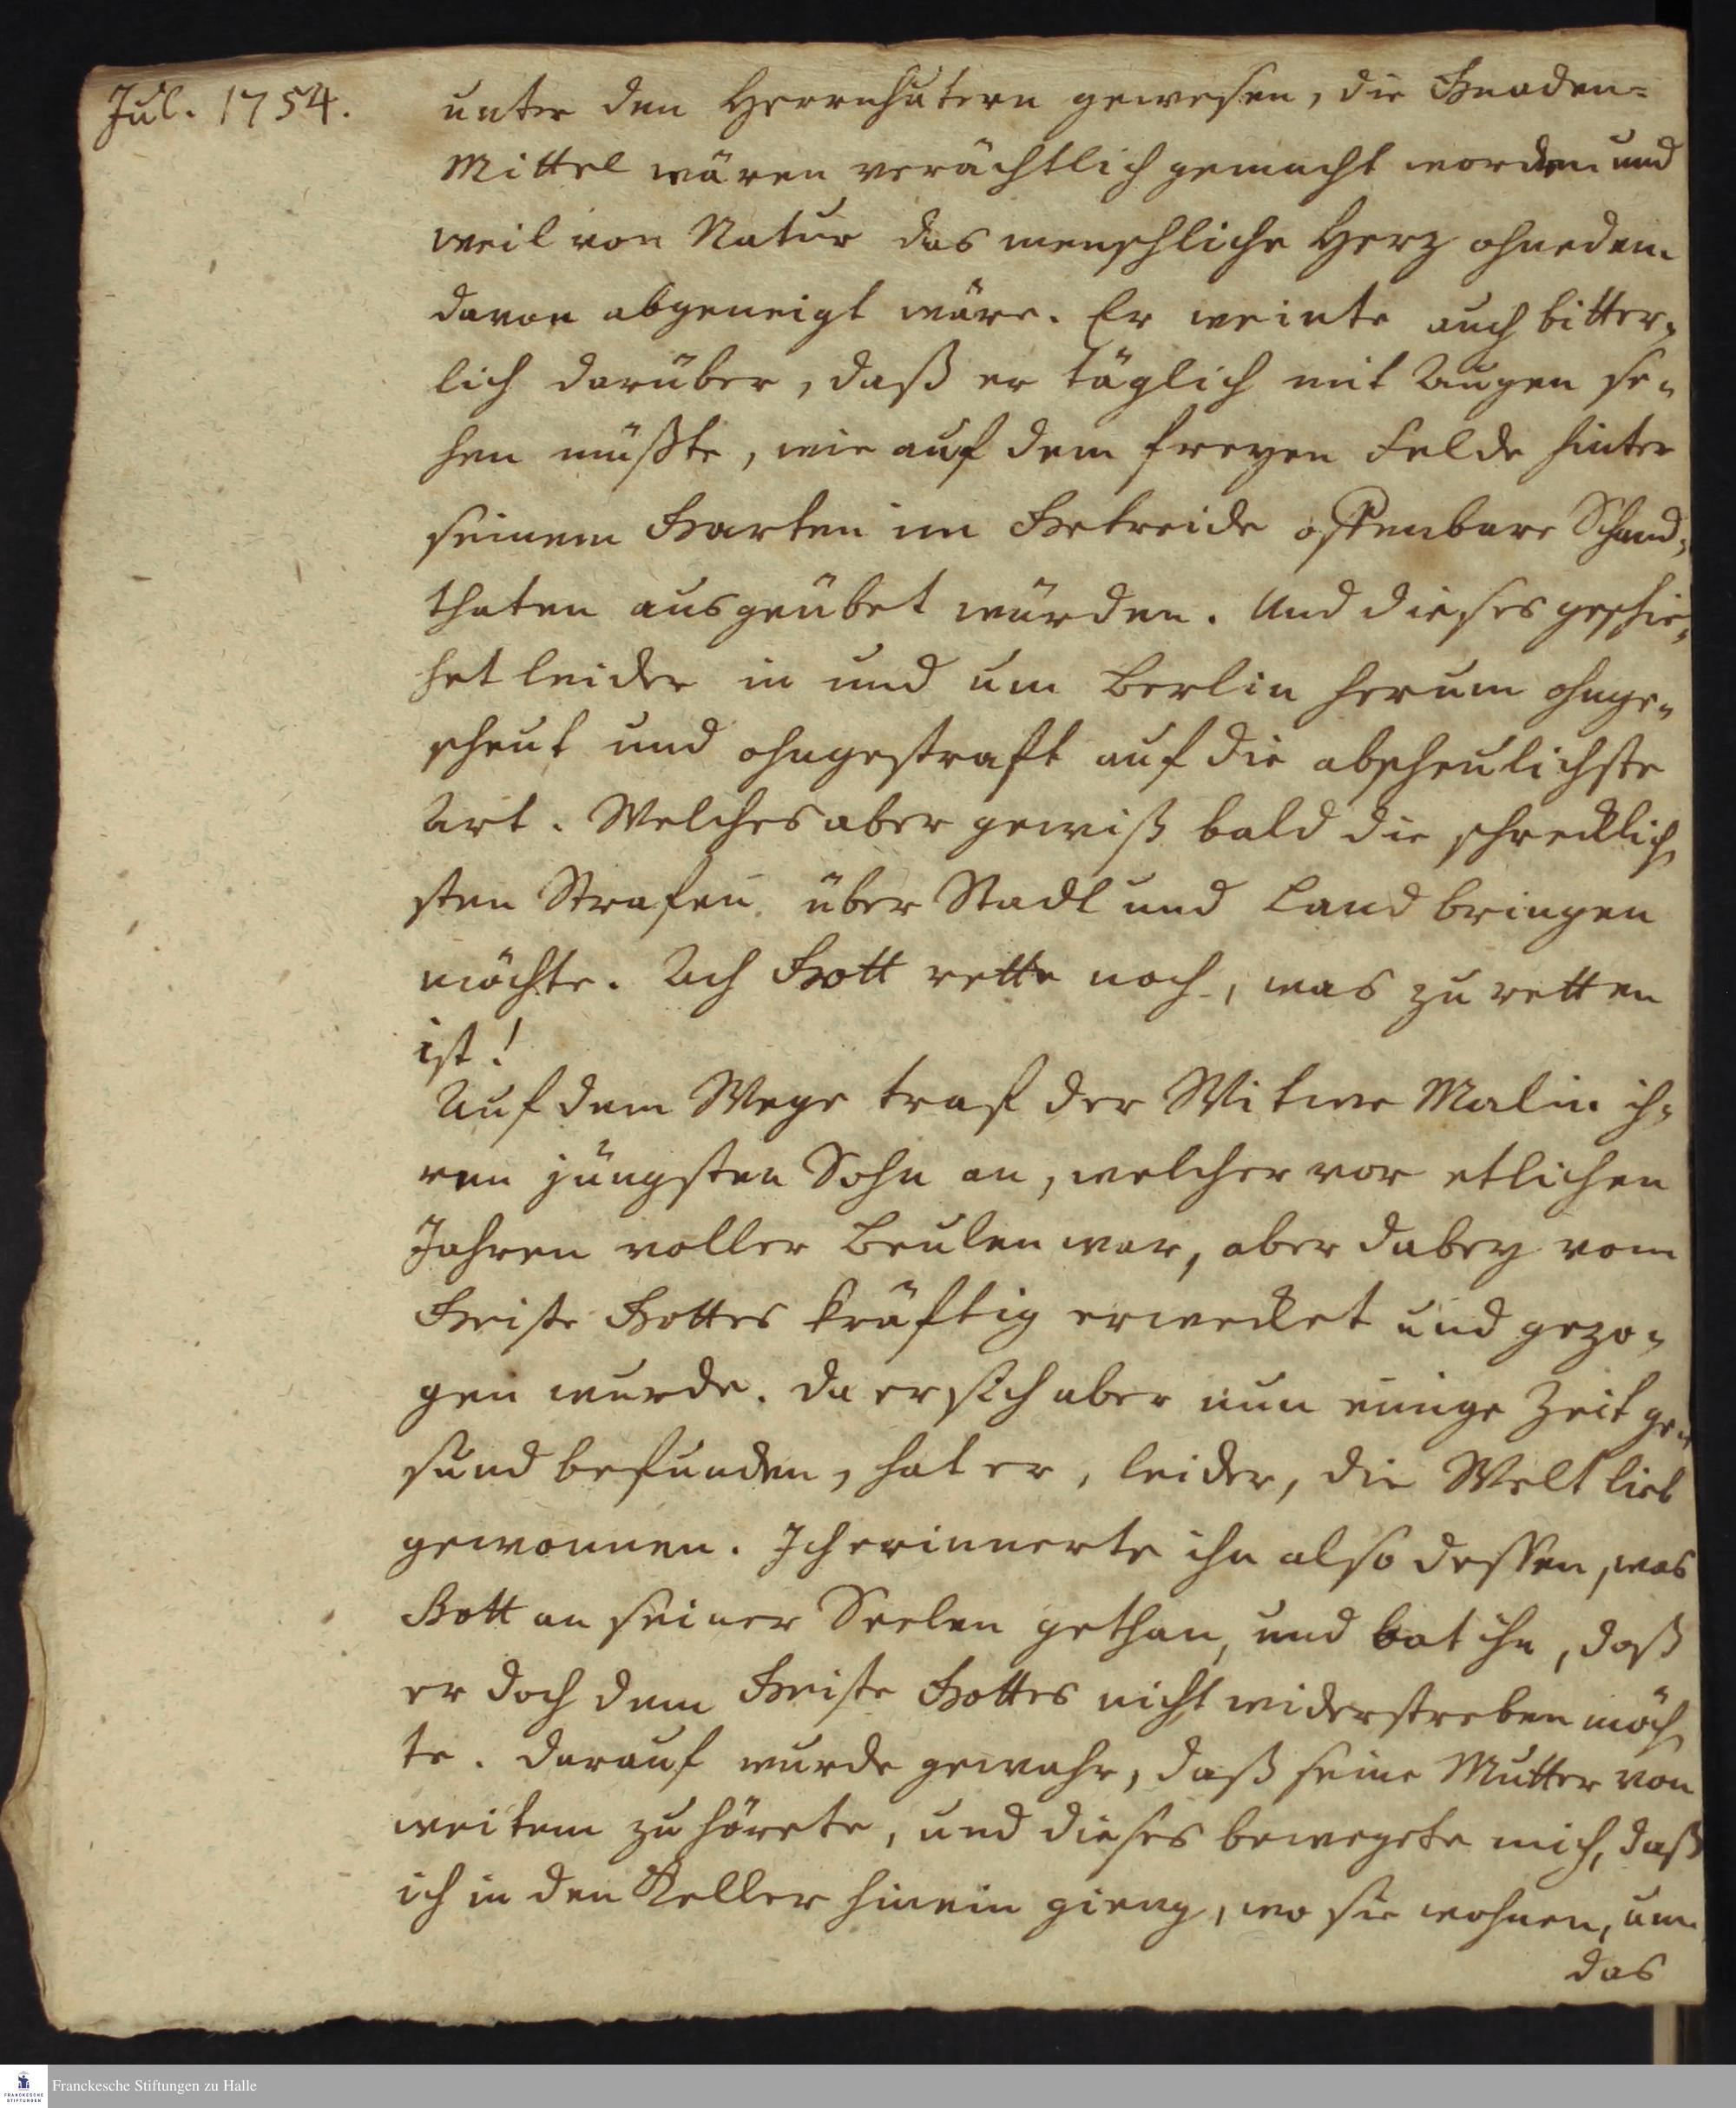 Jul. 1754.
unter den Herrnhutern gewesen, die Gnaden=
Mittel wären verächtlich gemacht worden und
weil von Natur das menschliche Herz ohnedem
davon abgeneigt wäre. Er weinte auch bitter=
lich darüber, daß er täglich mit Augen se=
hen müßte, wie auf dem freyen Felde hinter
seinem Garten im Getreide offenbare Schand=
thaten ausgeübet würden. Und dieses geschie=
het leider in und um Berlin herum ohnge=
scheut und ohngestraft auf die abscheulichste
Art. Welches aber gewiß bald die schrecklich=
sten Strafen über Stadt und Land bringen
möchte. Ach Gott rette noch, was zu retten
ist!
Auf dem Wege traf der Witwe Malin ih=
ren jüngsten Sohn an, welcher vor etlichen
Jahren voller Beulen war, aber dabey vom
Geiste Gottes kräftig erwecket und gezo=
gen wurde. Da er sich aber nun einige Zeit ge=
sund befunden, hat er, leider, die Welt lieb
gewonnen. Ich erinnerte ihn also dessen, was
Gott an seiner Seelen gethan, und bat ihn, daß
er doch dem Geiste Gottes nicht widerstreben möch=
te. Darauf wurde gewahr, daß seine Mutter von
weitem zuhörete, und dieses bewegete mich, daß
ich in den Keller hinein gieng, wo sie wohnen, um
das
Franckesche Stiftungen zu Halle
FRANCKESCHE
STIFTUNGEN